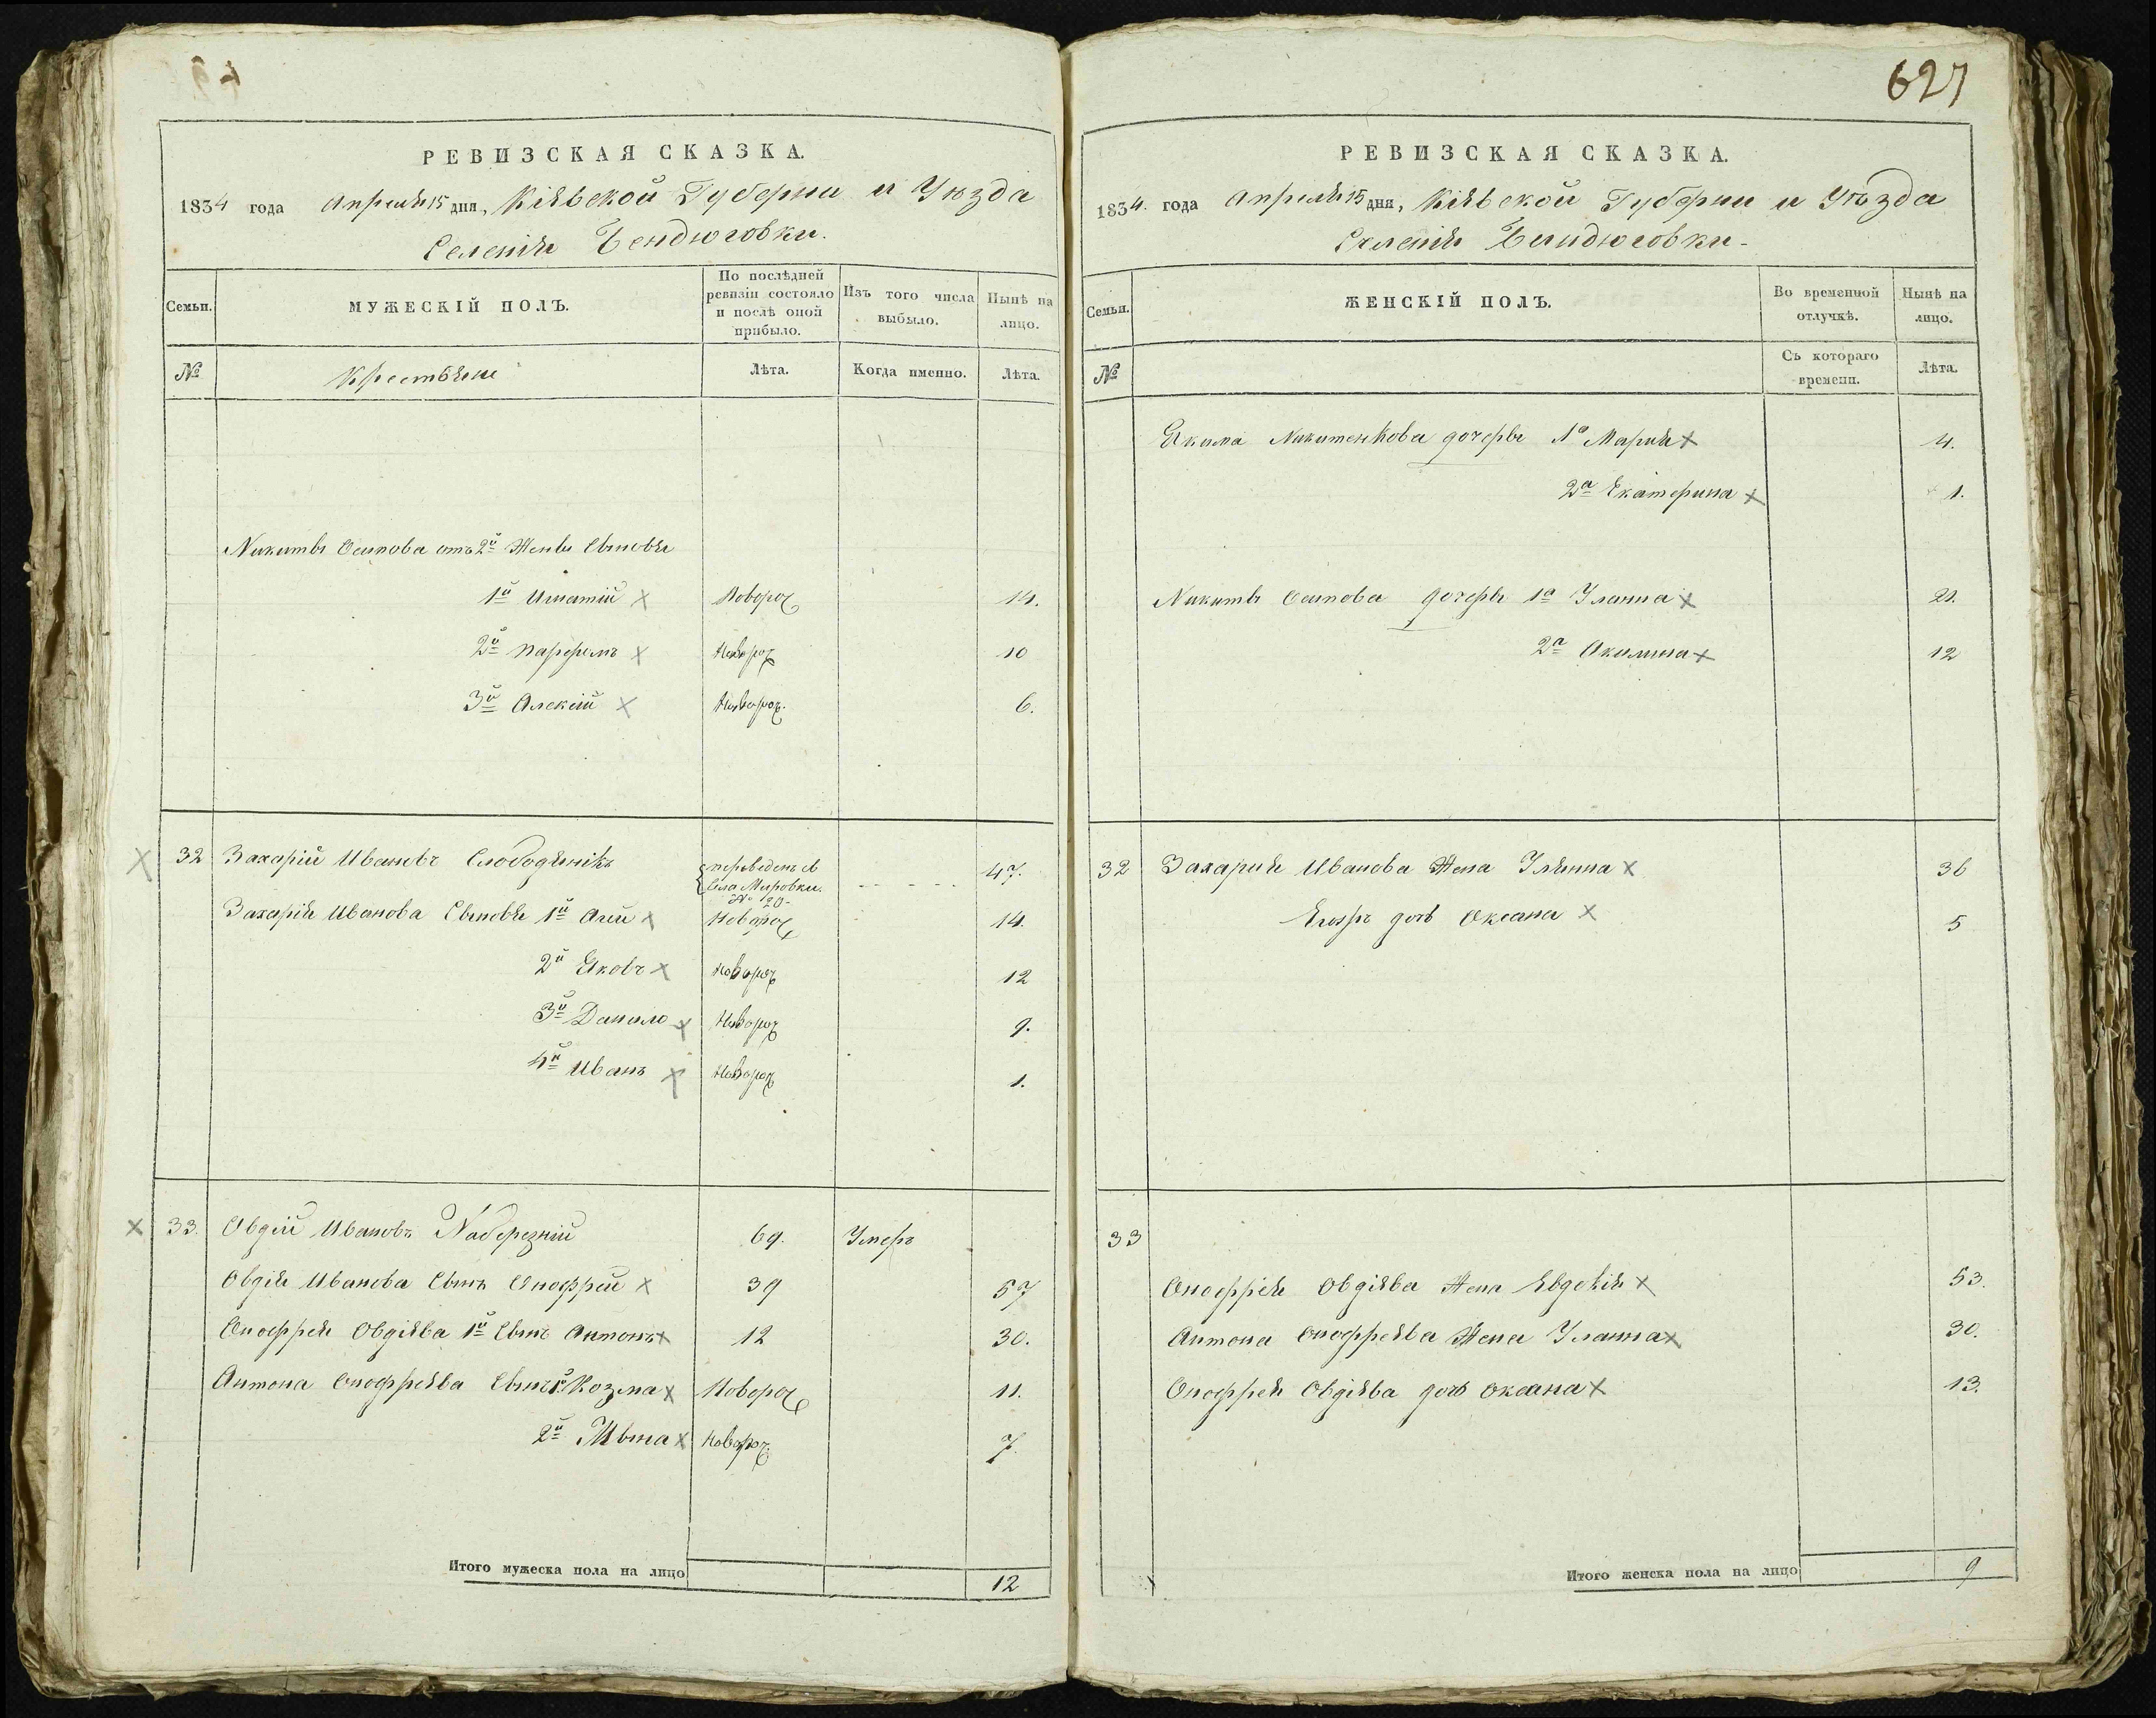 РЕВИЗСКАЯ СКАЗКА.
1834 года Апреля 15 дня, Кіявской Губерніи и Уѣзда
Селенія Бендюговки.
Семьи. МУЖЕСКІЙ ПОЛЪ. По послѣдней ревизіи состояло и послѣ оной прибыло. Изъ того числа выбыло. Нынѣ на лицо.
№ Крестьяне Лѣта. Когда именно. Лѣта.
Никиты Осипова отъ 2й Жены Сыновья
1й Игнатій Новорож 14.
2й Парфомъ Новорож 10
3й Алексій Новорож. 6.
32 Захарій Ивановъ Слободяникъ переведенъ съ Села Мировки. № 20. 47.
Захарія Иванова Сыновья 1й Агій Новорож 14.
2й Яковъ Новорож 12
3й Данило Новорож 9.
4й Иванъ Новорож 1.
33. Овдій Ивановъ Набережній 69. Умеръ
Овдія Иванова Сынъ Оноффрій 39 57
Оноффрія Овдіява 1й Сынъ Антонъ 12 30.
Антона Оноффріява Сынъ 1й Козма Новорож 11.
2й Новорож. 7.
Итого мужеска пола на лицо 12
627
РЕВИЗСКАЯ СКАЗКА.
1834. года Апреля 15 дня, Кіявской Губерніи и Уѣзда
Селенія Бендюговки.
Семьи. ЖЕНСКІЙ ПОЛЪ. Во временной отлучкѣ. Нынѣ на лицо.
№ Съ котораго времени. Лѣта.
Якима Никитенкова дочеры 1а Марія 4.
2а Екатерина 1.
Никиты Осипова дочеры 1а Уляна 21.
2а Акилина 12
32 Захарія Иванова Жена Уляна 36
Егожъ дочь Оксана 5
33
Оноффрія Овдіява Жена Евдокія 53.
Антона Оноффріява Жена Уляна 30.
Оноффрія Овдіява дочь Оксана 13.
Итого женска пола на лицо 9